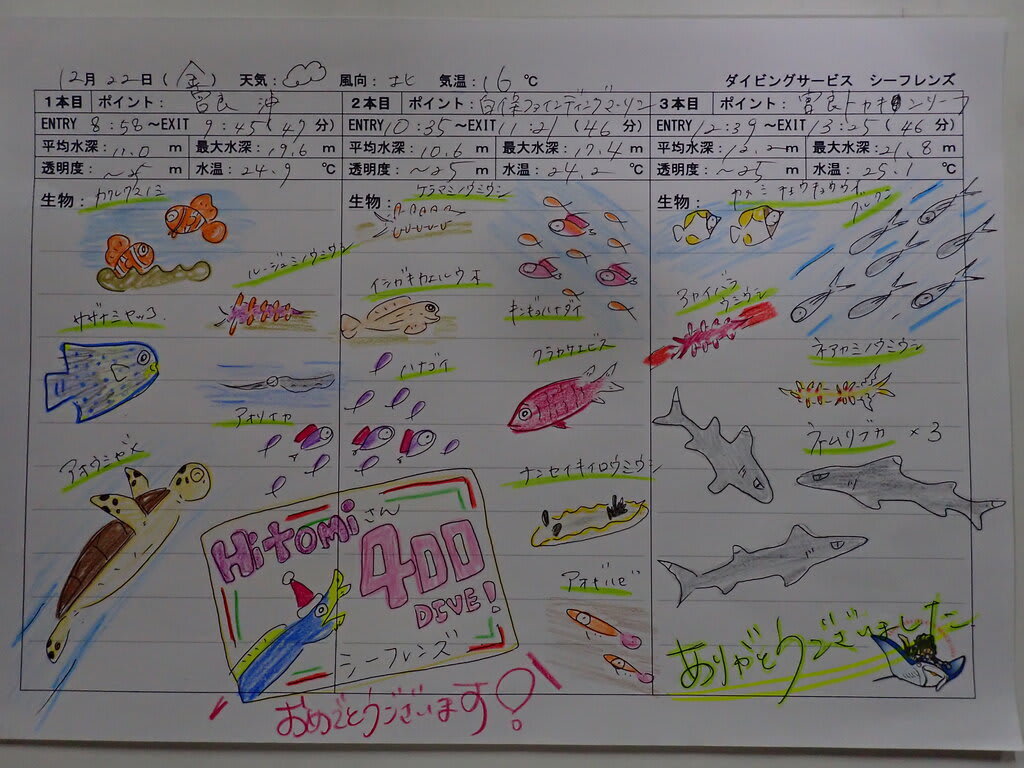 12月 22日 (金) 天気: 風向: 北 気温: 16 ℃ ダイビングサービス シーフレンズ
1本目 ポイント: 宮良 沖
ENTRY 8:58 ~EXIT 9:45 (47 分)
平均水深: 11.0 m 最大水深: 19.6 m
透明度: ~25 m 水温: 24.9 ℃
生物: カクレクマノミ
ルージュミノウミウシ
サザナミヤッコ
アオリイカ
アオウミガメ
2本目 ポイント: 白保ファインディングマーリン
ENTRY 10:35 ~EXIT 11:21 (46 分)
平均水深: 10.6 m 最大水深: 17.4 m
透明度: ~25 m 水温: 24.2 ℃
生物: ケラマミノウミウシ
イシガキカエルウオ
キンギョハナダイ
ハナゴイ
クラカケエビス
ナンセイキイロウミウシ
アオギハゼ
3本目 ポイント: 宮良トカキンリーフ
ENTRY 12:39 ~EXIT 13:25 (46 分)
平均水深: 12.2 m 最大水深: 21.8 m
透明度: ~25 m 水温: 25.1 ℃
生物: カガミチョウチョウウオ
グルクン
アカイバラウミウシ
ネアカミノウミウシ
ネムリブカ ×3
Hitomiさん
400
DIVE!
シーフレンズ
おめでとうございます!
ありがとうございました